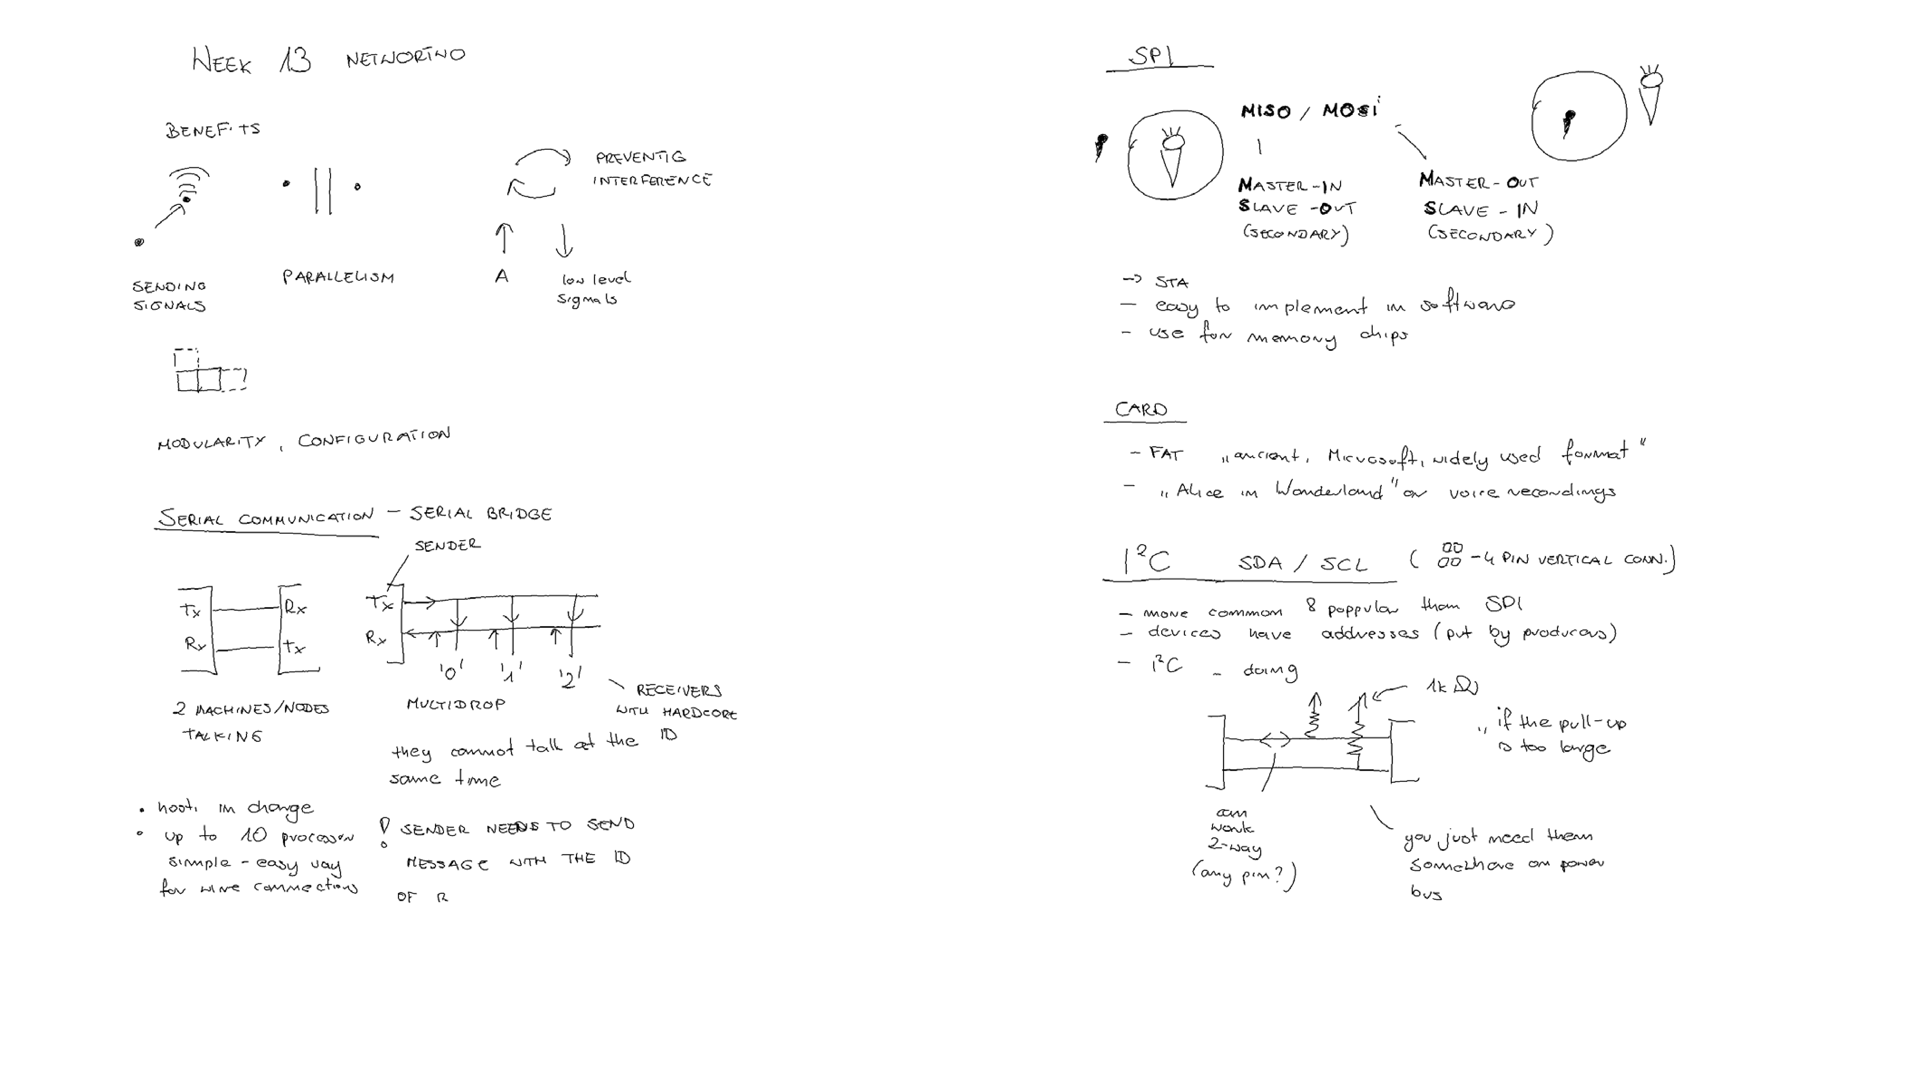 WEEK 13 NETWORING
BENEFITS
PREVENTIG
INTERFERENCE
SENDING
SIGNALS
PARALLELISM
A
low level
signals
MODULARITY, CONFIGURATION
SERIAL COMMUNICATION - SERIAL BRIDGE
SENDER
Tx Rx
Rx Tx
Tx
Rx
'0' '1' '2'
2 MACHINES/NODES
TALKING
MULTIDROP
RECEIVERS
WITH HARDCORE
ID
they cannot talk at the
same time
• host, in charge
• up to 10 processor
simple - easy way
for wire connections
! SENDER NEEDS TO SEND
MESSAGE WITH THE ID
OF R
SPI
MISO / MOSI
MASTER-IN
SLAVE-OUT
(SECONDARY)
MASTER-OUT
SLAVE-IN
(SECONDARY)
-> STA
- easy to implement in software
- use for memory chips
CARD
- FAT „ancient, Microsoft, widely used format"
- „Alice in Wonderland" or voice recordings
I²C SDA / SCL ( - 4 PIN VERTICAL CONN.)
- more common & poppular than SPI
- devices have addresses (put by producers)
- I²C - doing
1k Ω
„if the pull-up
is too large
can
work
2-way
(any pin?)
you just need them
somewhere on power
bus